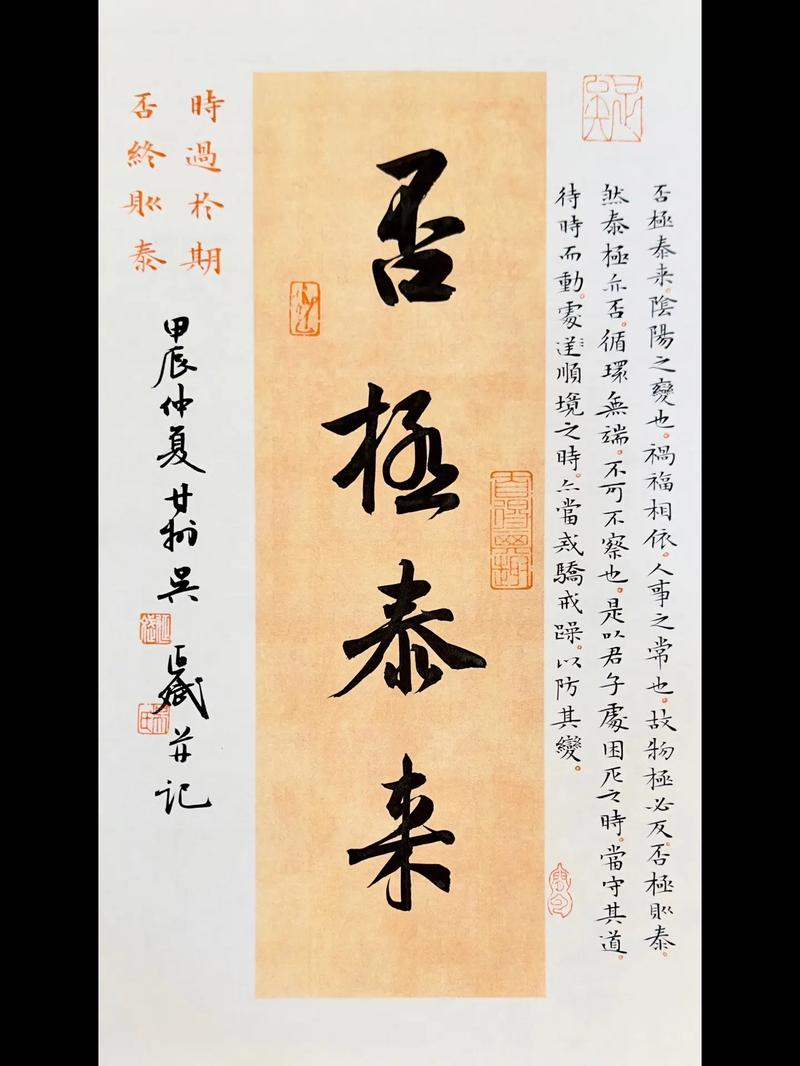 否極泰来。陰陽之變也。禍福相依。人事之常也。故物極必反。否極則泰。
然泰極亦否。循環無端。不可不察也。是以君子處困厄之時。當守其道。
待時而動。處順境之時。亦當戒驕戒躁。以防其變。
否極泰来
時過於期
否終則泰
甲辰仲夏吴并记